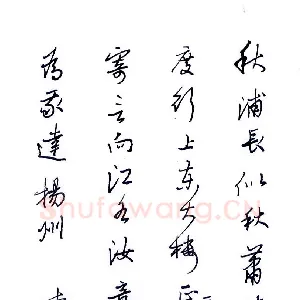 秋浦長似秋蕭
度行上東大樓
寄言向江水汝意
為我達揚州
Shufawang.CN